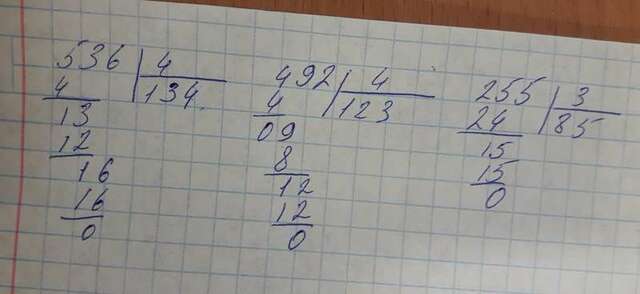 536 | 4
4 134
13
12
16
16
0
492 | 4
4 123
09
8
12
12
0
255 | 3
24 85
15
15
0